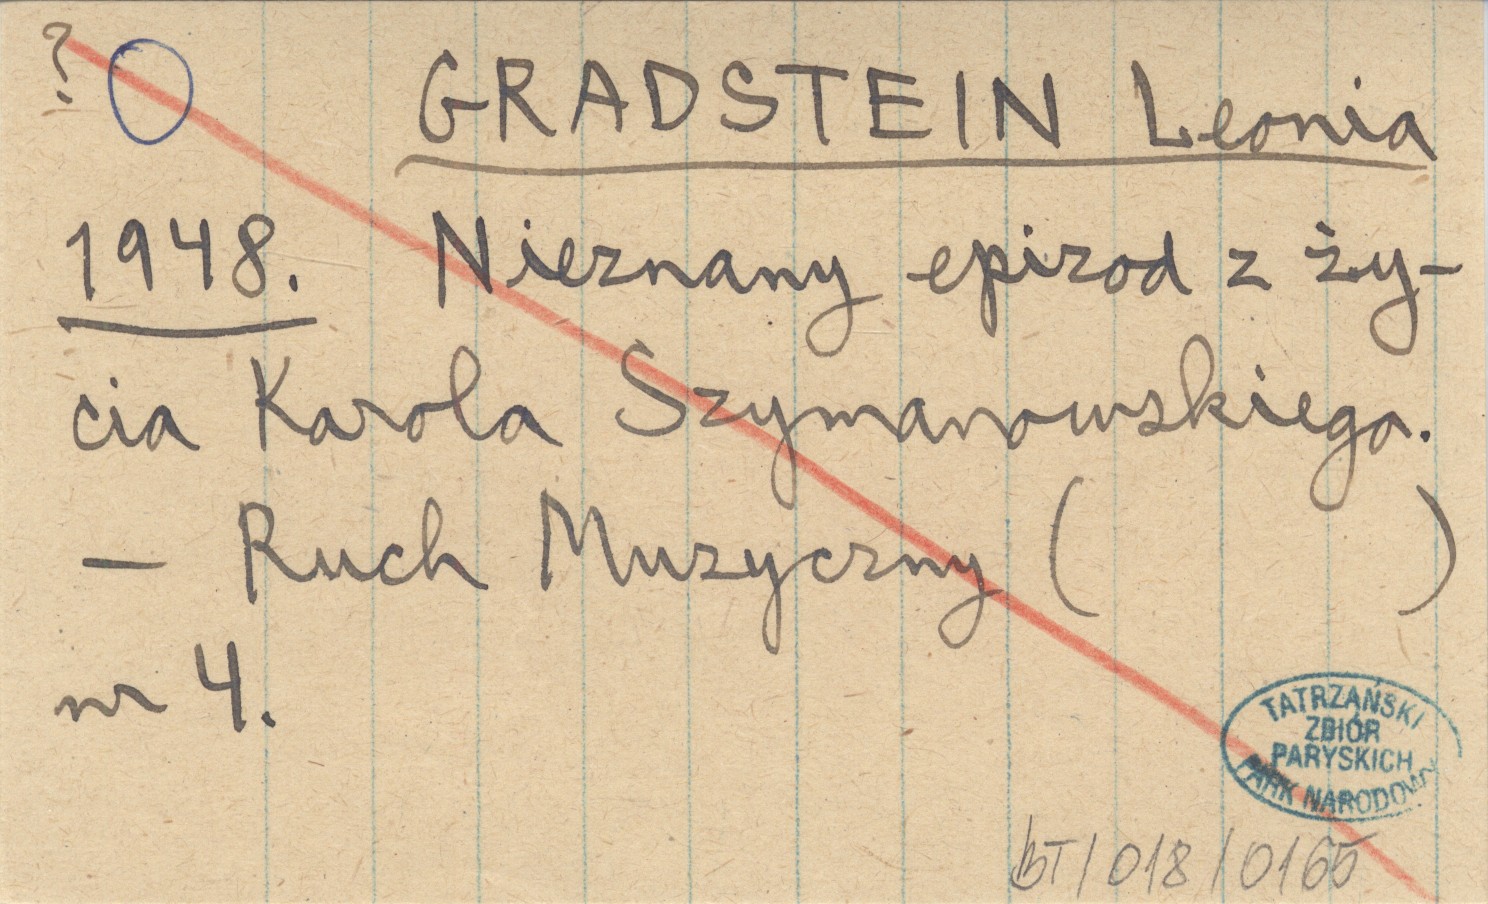 ?
GRADSTEIN Leonia
1948. Nieznany epizod z ży-
cia Karola Szymanowskiego.
— Ruch Muzyczny ( )
nr 4.
TATRZAŃSKI
ZBIÓR
PARYSKICH
PARK NARODOWY
bT/018/0165